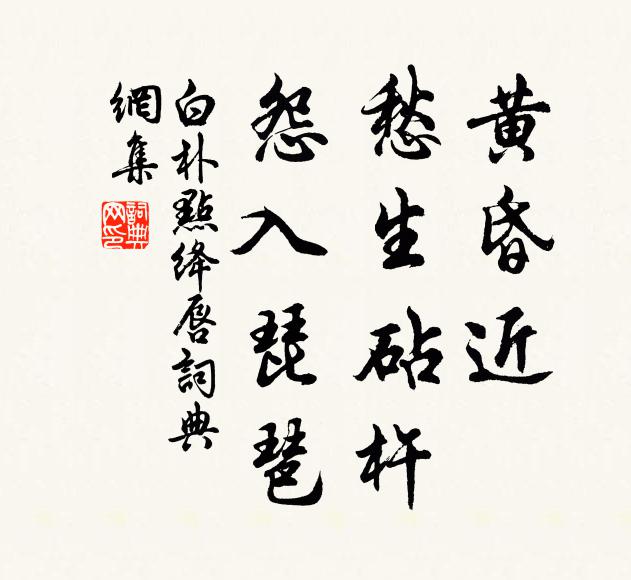 黄昏近
愁生砧杵
怨入琵琶
白朴點絳唇詞典
網集
詞典網印